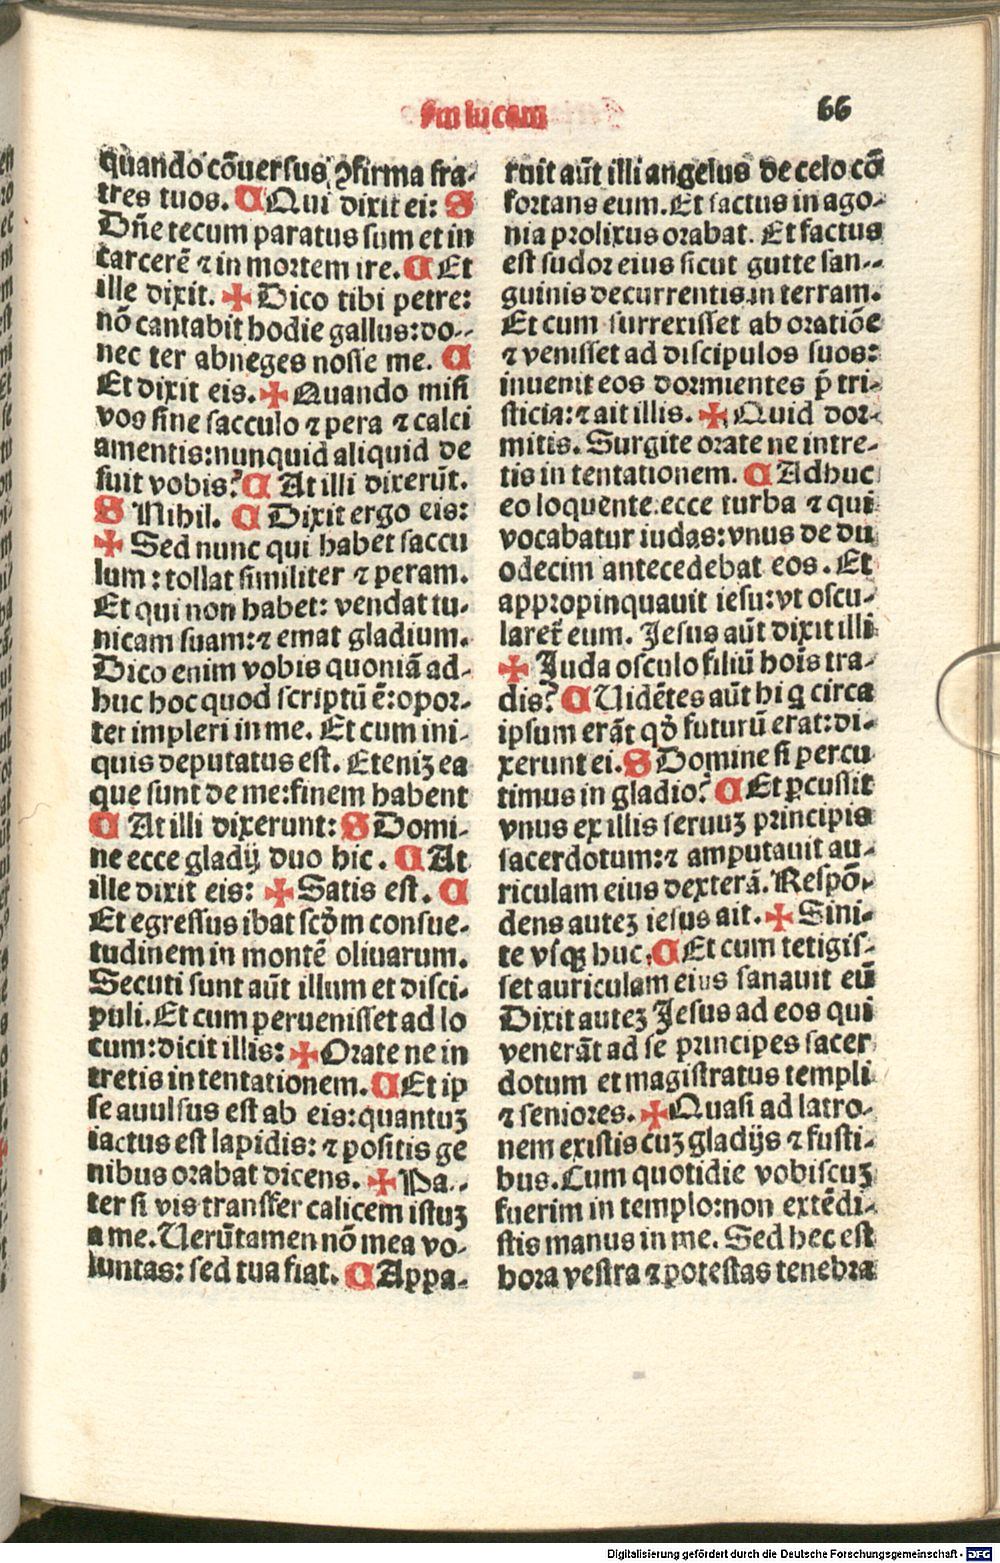 s̄m lucam
66
quando cōuersus ꝯfirma fra-
tres tuos. C Qui dixit ei: S
Dñe tecum paratus sum et in
carcerē ⁊ in mortem ire. C Et
ille dixit. ✠ Dico tibi petre:
nō cantabit hodie gallus: do--
nec ter abneges nosse me. C
Et dixit eis. ✠ Quando misi
vos sine sacculo ⁊ pera ⁊ calci
amentis: nunquid aliquid de
fuit vobis? C At illi dixerūt.
S Nihil. C Dixit ergo eis:
✠ Sed nunc qui habet saccu
lum: tollat similiter ⁊ peram.
Et qui non habet: vendat tu-
nicam suam: ⁊ emat gladium.
Dico enim vobis quoniā ad-
huc hoc quod scriptū ē: opor-
tet impleri in me. Et cum ini-
quis deputatus est. Eteniꝫ ea
que sunt de me: finem habent
C At illi dixerunt: S Domi-
ne ecce gladij duo hic. C At
ille dixit eis: ✠ Satis est. C
Et egressus ibat scd̄m consue-
tudinem in montē oliuarum.
Secuti sunt aūt illum et disci-
puli. Et cum peruenisset ad lo
cum: dicit illis: ✠ Orate ne in
tretis in tentationem. C Et ip
se auulsus est ab eis: quantuꝫ
iactus est lapidis: ⁊ positis ge
nibus orabat dicens. ✠ Pa--
ter si vis transfer calicem istuꝫ
a me. Uerūtamen nō mea vo-
luntas: sed tua fiat. C Appa-
ruit aūt illi angelus de celo cō
fortans eum. Et factus in ago-
nia prolixus orabat. Et factus
est sudor eius sicut gutte san--
guinis decurrentis in terram.
Et cum surrexisset ab oratiōe
⁊ venisset ad discipulos suos:
inuenit eos dormientes p̄ tri-
sticia: ⁊ ait illis. ✠ Quid dor-
mitis. Surgite orate ne intre-
tis in tentationem. C Adhuc
eo loquente. ecce turba ⁊ qui
vocabatur iudas: vnus de du
odecim antecedebat eos. Et
appropinquauit iesu: vt oscu-
laret̄ eum. Jesus aūt dixit illi
✠ Juda osculo filiū hoīs tra-
dis? C Uidētes aūt hi q̄ circa
ipsum erāt qd̄ futurū erat: di-
xerunt ei. S Domine si percu
timus in gladio? C Et ꝑcussit
vnus ex illis seruuꝫ principis
sacerdotum: ⁊ amputauit au-
riculam eius dexterā. Respō-
dens auteꝫ iesus ait. ✠ Sini-
te vsqꝫ huc. C Et cum tetigis-
set auriculam eius sanauit eū
Dixit auteꝫ Jesus ad eos qui
venerāt ad se principes sacer
dotum et magistratus templi
⁊ seniores. ✠ Quasi ad latro-
nem existis cuꝫ gladijs ⁊ fusti-
bus. Cum quotidie vobiscuꝫ
fuerim in templo: non extēdi-
stis manus in me. Sed hec est
hora vestra ⁊ potestas tenebra
Digitalisierung gefördert durch die Deutsche Forschungsgemeinschaft - DFG